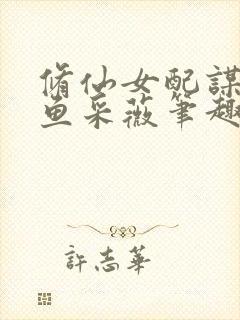 脩仙女配謀
鱼采薇筆趣
許志華